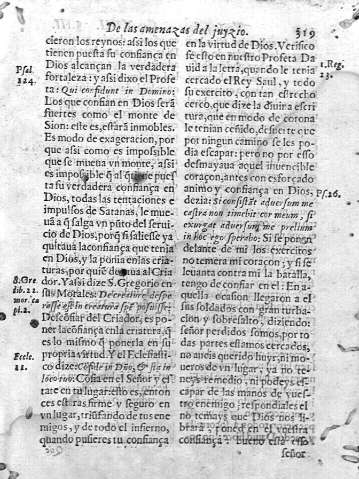 De las amenazas del juyzio.
319
cieron los reynos: assi los que
tienen puesta su confiança en
Dios alcançan la verdadera
fortaleza: y assi dixo el Profe
ta: Qui confidunt in Domino:
Los que confian en Dios serã
fuertes como el monte de
Sion: este es, estarã inmobles.
Es modo de exageracion, por
que assi como es impossible
que se mueua vn monte, assi
es impossible q̃ al q̃ tiene pues
ta su verdadera confiança en
Dios, todas las tentaciones e
impulsos de Satanas, le mue-
uã a q̃ salga vn pũto del serui-
cio de Dios, porq̃ si saliesse ya
quitaua la confiança que tenia
en Dios, y la ponia en las cria-
turas, por quiẽ dexaua al Cria
dor. Y assi dize S. Gregorio en
sus Morales:
Desconfiar del Criador, es po-
ner la cõfiança en la criatura, q̃
es lo mismo q̃ ponerla en su
propria virtud. Y el Eclesiasti-
co dize: Cõfide in Deo, & sta in
loco tuo: Cõfia en el Señor y es-
tate en tu lugar: esto es, enton
ces estaras firme y seguro en
vn lugar, triũfando de tus ene
migos, y de todo el infierno,
quando pusieres tu confiança
Psal.
124.
S. Gre.
lib. 22.
mor. ca
pi. 2.
Eccle.
11.
en la virtud de Dios. Verifico
se esto en nuestro Profeta Da
uid a la letra, quando le tenia
cercado el Rey Saul, y todo
su exercito, con tan estrecho
cerco, que dize la diuina escri
tura, que en modo de corona
le tenian ceñido, de suerte que
por ningun camino se les po-
dia escapar: pero no por esso
desmayaua aquel inuencible
coraçon, antes con esforçado
animo y confiança en Dios,
dezia: Si consistãt aduersum me
castra non timebit cor meum, si
exurgat aduersum me prelium
in hoc ego sperabo: Si se ponen
delante de mi los exercitos
no temera mi coraçon, y si se
leuanta contra mi la batalla,
tengo de confiar en el: En a-
quella ocasion llegaron a el
sus soldados con gran turba-
cion y sobresalto, diziendo:
señor perdidos somos, por to
das partes estamos cercados,
no aueis querido huyr, ni mo
ueros de vn lugar, ya no te-
neys remedio, ni podeys es-
capar de las manos de vues-
tro enemigo: respondiales el
no temays que Dios nos li-
brarà, poned en el vuestra
confiança: bueno està esso
señor
1. Reg.
23.
Ps. 26.